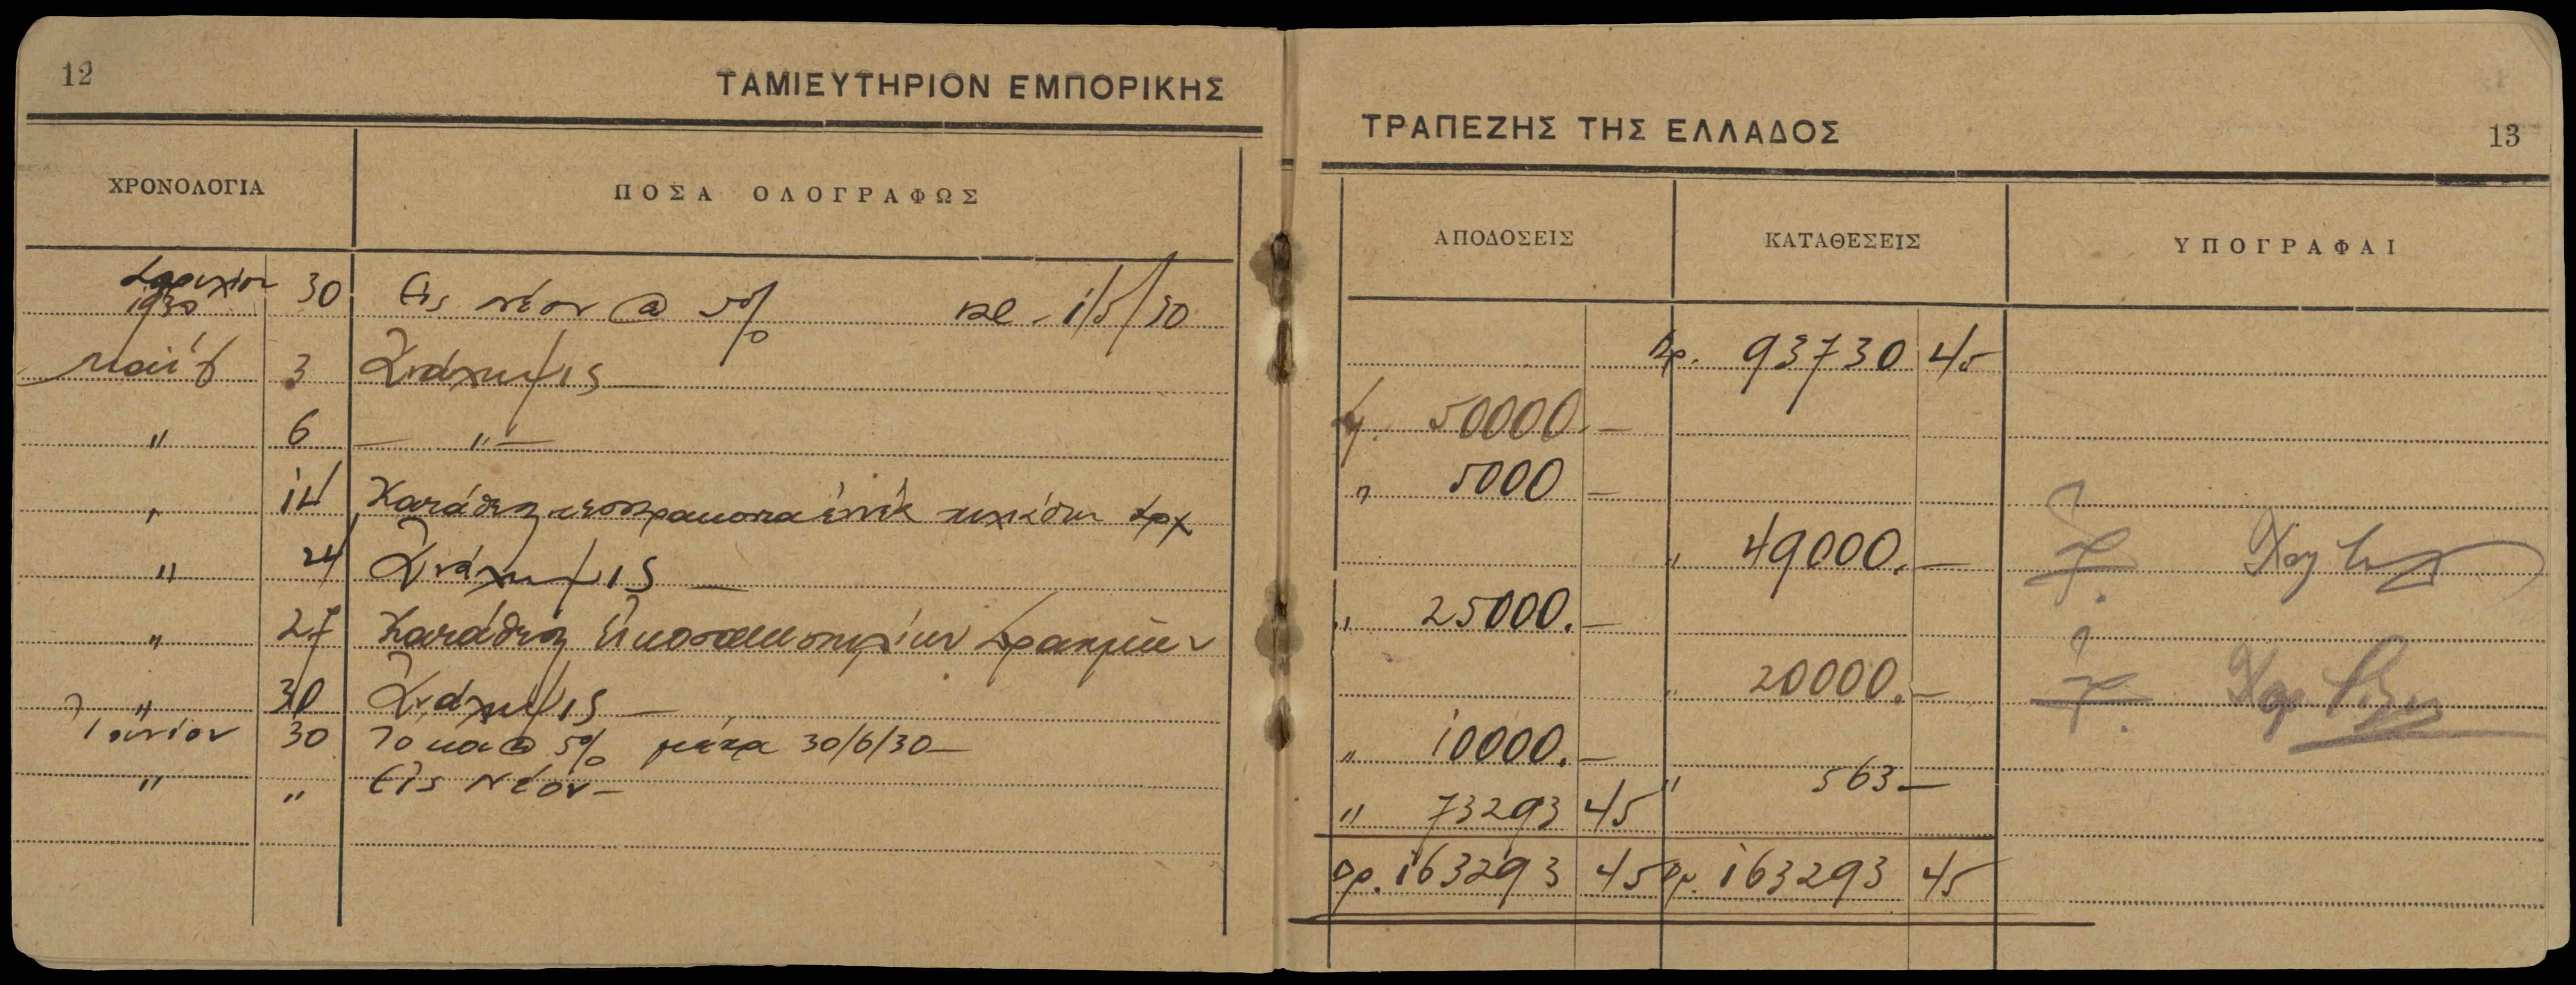 12
ΤΑΜΙΕΥΤΗΡΙΟΝ ΕΜΠΟΡΙΚΗΣ
ΧΡΟΝΟΛΟΓΙΑ ΠΟΣΑ ΟΛΟΓΡΑΦΩΣ
1930 30 Εἰς νέον @ 5% 1/5/30
Μαΐου 3 Ἀνάληψις —
" 6 — " —
" 14 Κατάθεσις
" 24 Ἀνάληψις —
" 27 Κατάθεσις δραχμῶν
" 30 Ἀνάληψις —
Ἰουνίου 30 Τόκοι @ 5% μέχρι 30/6/30 —
" " Εἰς Νέον —
ΤΡΑΠΕΖΗΣ ΤΗΣ ΕΛΛΑΔΟΣ
13
ΑΠΟΔΟΣΕΙΣ ΚΑΤΑΘΕΣΕΙΣ ΥΠΟΓΡΑΦΑΙ
Δρ. 93730 45
Δρ. 50000. —
" 5000 —
" 49000. —
" 25000. —
" 20000. —
" 10000. —
" 563 —
" 73293 45
Δρ. 163293 45 Δρ. 163293 45